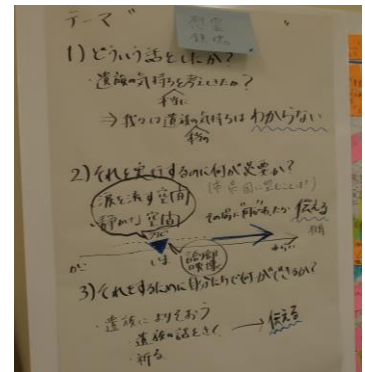 テーマ
1) どういう話をしたか?
・遺族の気持ちを考えてきたか?
本当に
⇒ 我々は遺族の気持ちは わからない
本当の
2) それを実行するのに何が必要か?
涙を流す空間
静かな空間
その場に何があったか 伝える
かこ
いま
みらい
3) それをするために自分たちで何ができるか?
・遺族によりそおう
遺族の話をきく → 伝える
・祈る